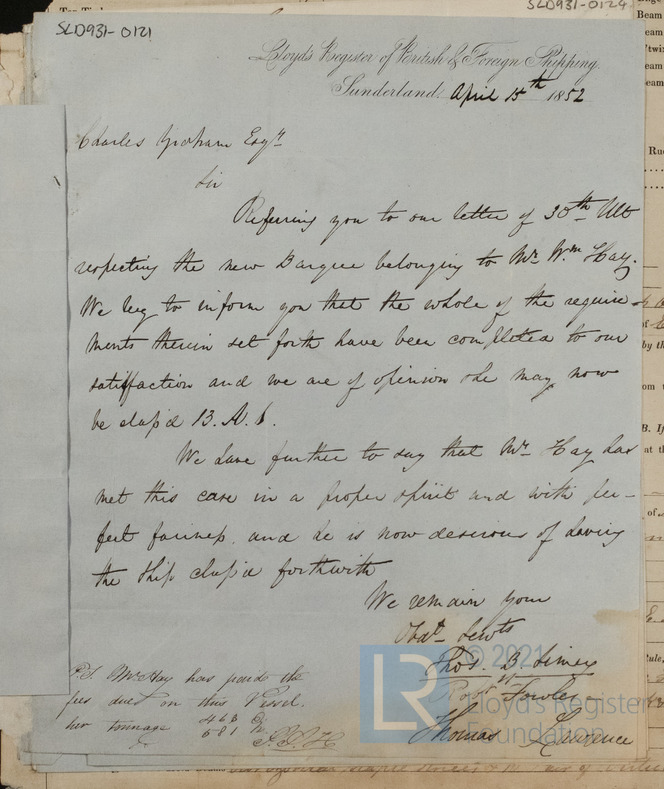 SLD931-0121
SLD931-0124
Lloyd's Register of British & Foreign Shipping.
Sunderland. April 15th 1852
Charles Graham Esqre
Sir
Referring you to our letter of 30th Ult
respecting the new Barque belonging to Mr Wm Hay.
We beg to inform you that the whole of the require-
ments therein set forth have been completed to our
satisfaction and we are of opinion she may now
be class'd 13. A. 1.
We have further to say that Mr Hay has
met this case in a proper spirit and with per-
fect fairness, and he is now desirous of having
the Ship class'd forthwith
We remain your
Obdt Servts
Thos. B. Simey
Robt Fowles
Thomas Lawrence
P.S. Mr Hay has paid the
fees due on this Vessel.
her tonnage 463
581
© 2021
LR
Lloyd's Register
Foundation